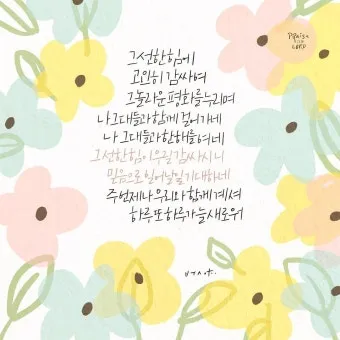 PRAISE
THE
LORD
그 선한 힘에
고요히 감싸여
그 놀라운 평화를 누리며
나 그대들과 함께 걸어가네
나 그대들과 한해를 여네
그 선한 힘이 우릴 감싸시니
믿음으로 일어날 일 기대하네
주 언제나 우리와 함께 계셔
하루 또 하루가 늘 새로워